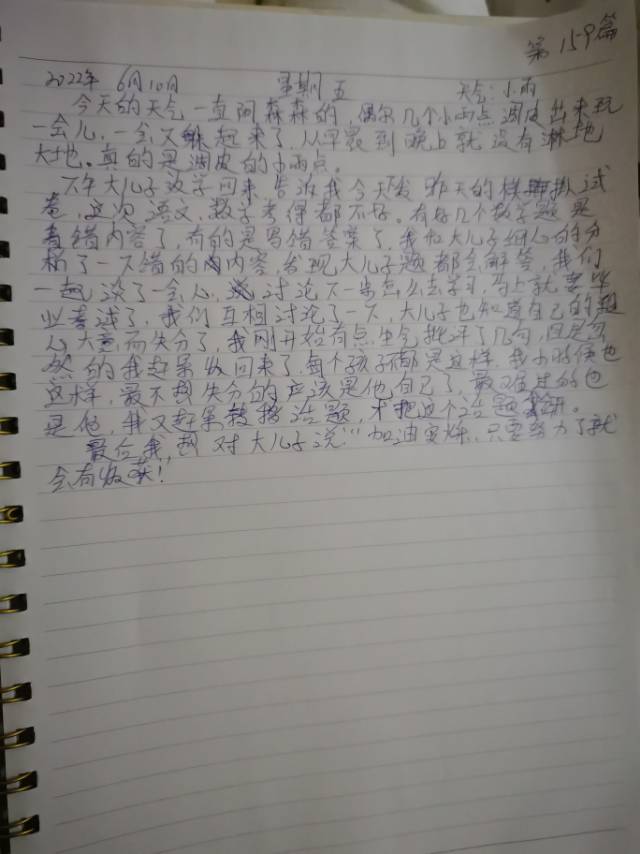 第159篇
2022年 6月10日 星期五 天气:小雨
今天的天气一直阿森森的,偶尔几个小雨点调皮出来玩
一会儿,一会又躲起来了,从早晨到晚上就没有淋地
大地。真的是调皮的小雨点。
下午大儿子放学回来,告诉我今天发昨天的模拟试
卷,这次语文、数学考得都不好。有好几个数学题是
看错内容了,有的是写错答案了,我和大儿子细心的分
析了一下错的内容,发现大儿子题都会解答,我们
一起谈了一会心,讨论下一步怎么去学习,马上就要毕
业考试了,我们互相讨论了一下,大儿子也知道自己的
心大意而失分了,我刚开始有点生气批评了几句,但是
的我赶紧收回来了,每个孩子都是这样,我小时候也
这样,最不想失分的应该是他自己了,最难过的也
是他,我又赶紧转移话题,才把这个话题
最后我想对大儿子说:"加油宝贝,只要努力了就
会有收获!"